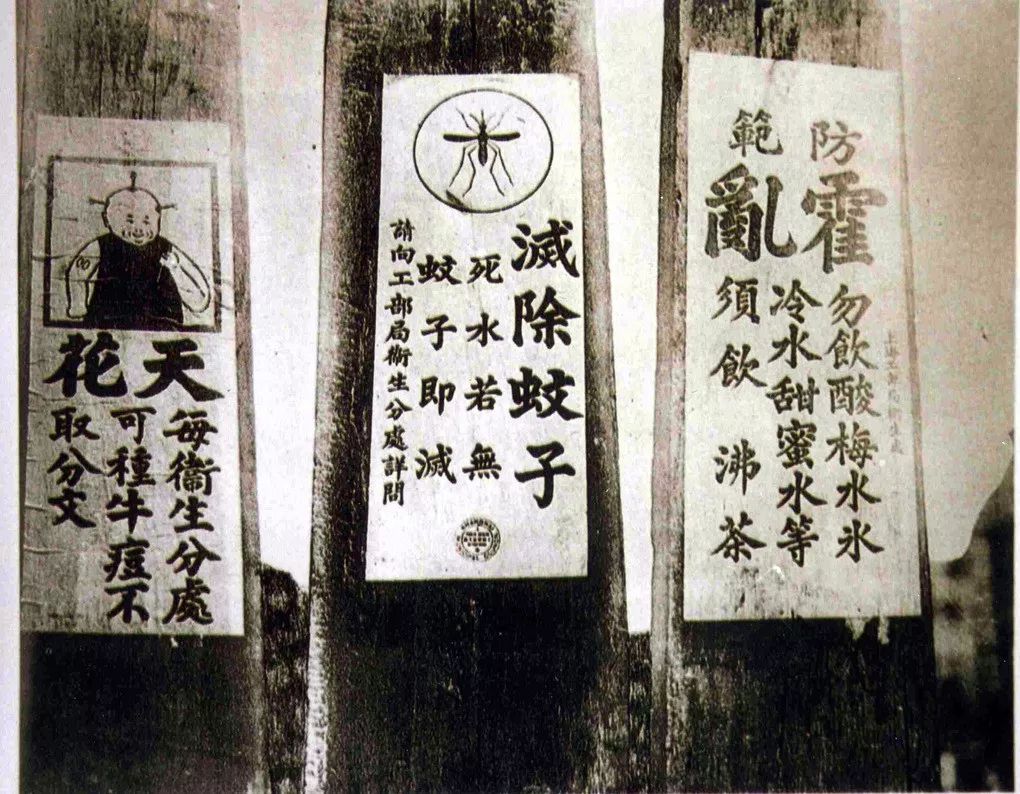 防範
霍亂
勿飲酸梅水氷
冷水甜蜜水等
須飲沸茶
滅除蚊子
死水若無
蚊子即滅
請向工部局衛生分處詳問
天花
每衞生分處
可種牛痘不
取分文